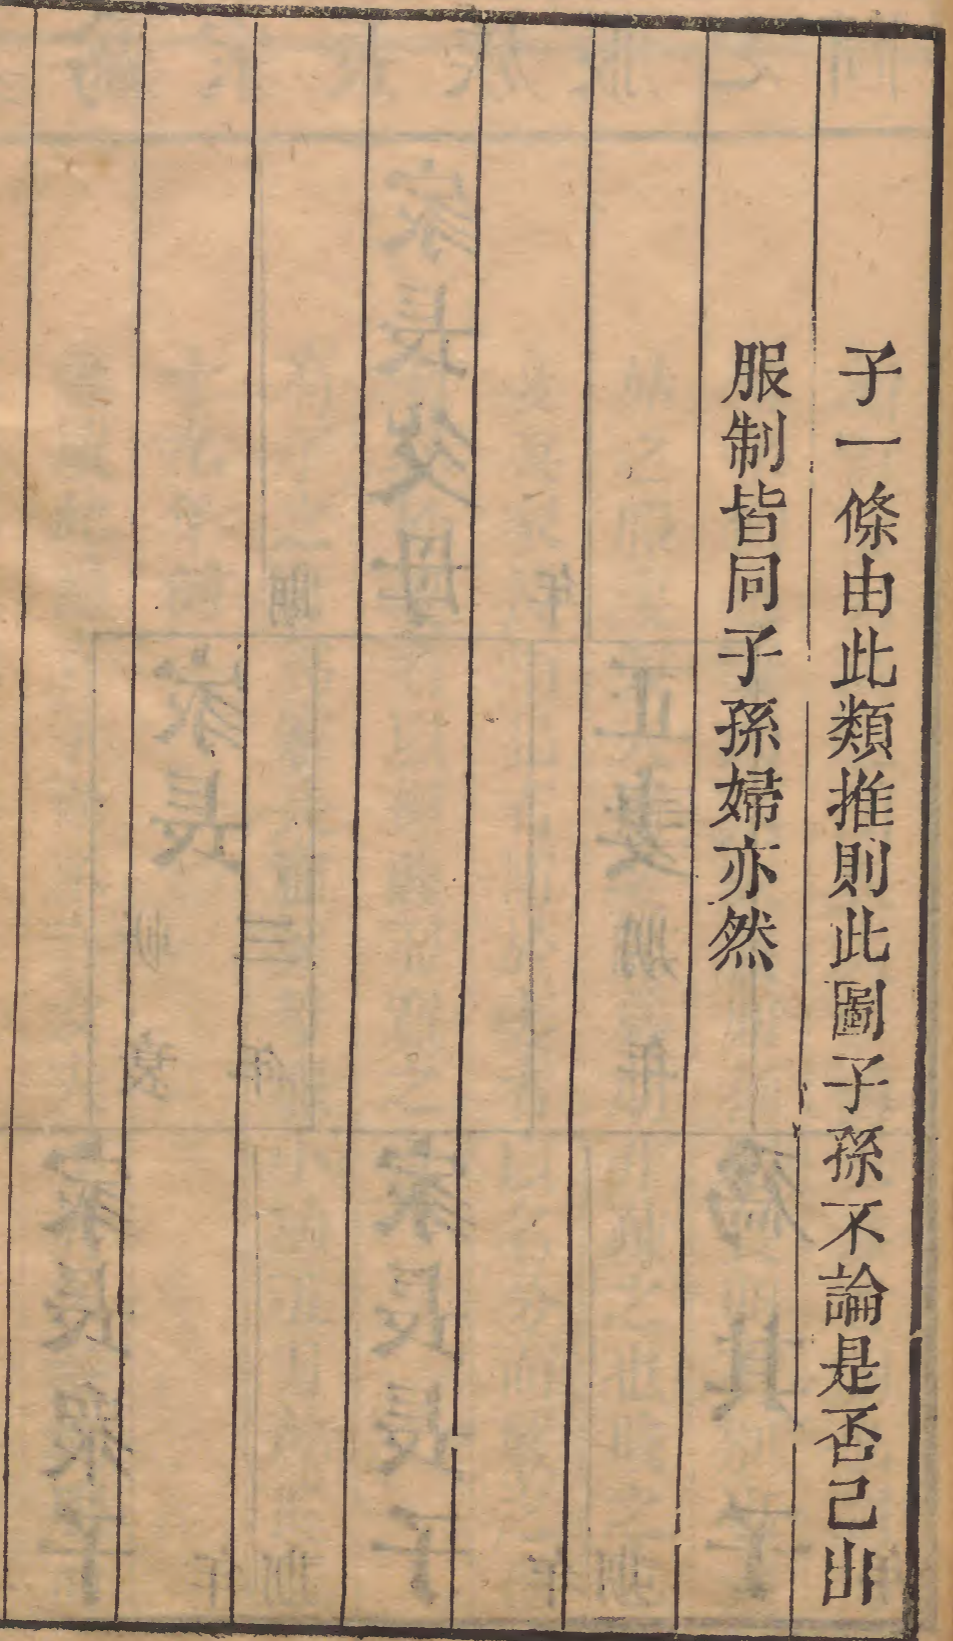 子一條由此類推則此圖子孫不論是否己出
服制皆同子孫婦亦然